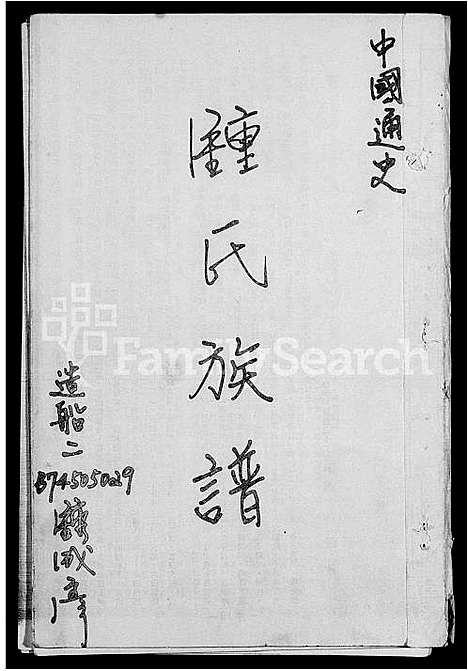 中國通史
鍾氏族譜
FamilySearch
造船二
B74505029